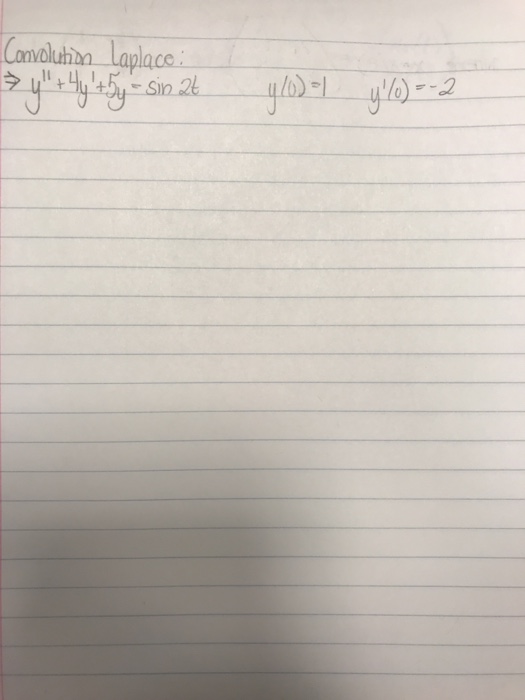 Convolution Laplace:
⇒ y'' + 4y' + 5y = sin 2t y(0) = 1 y'(0) = -2